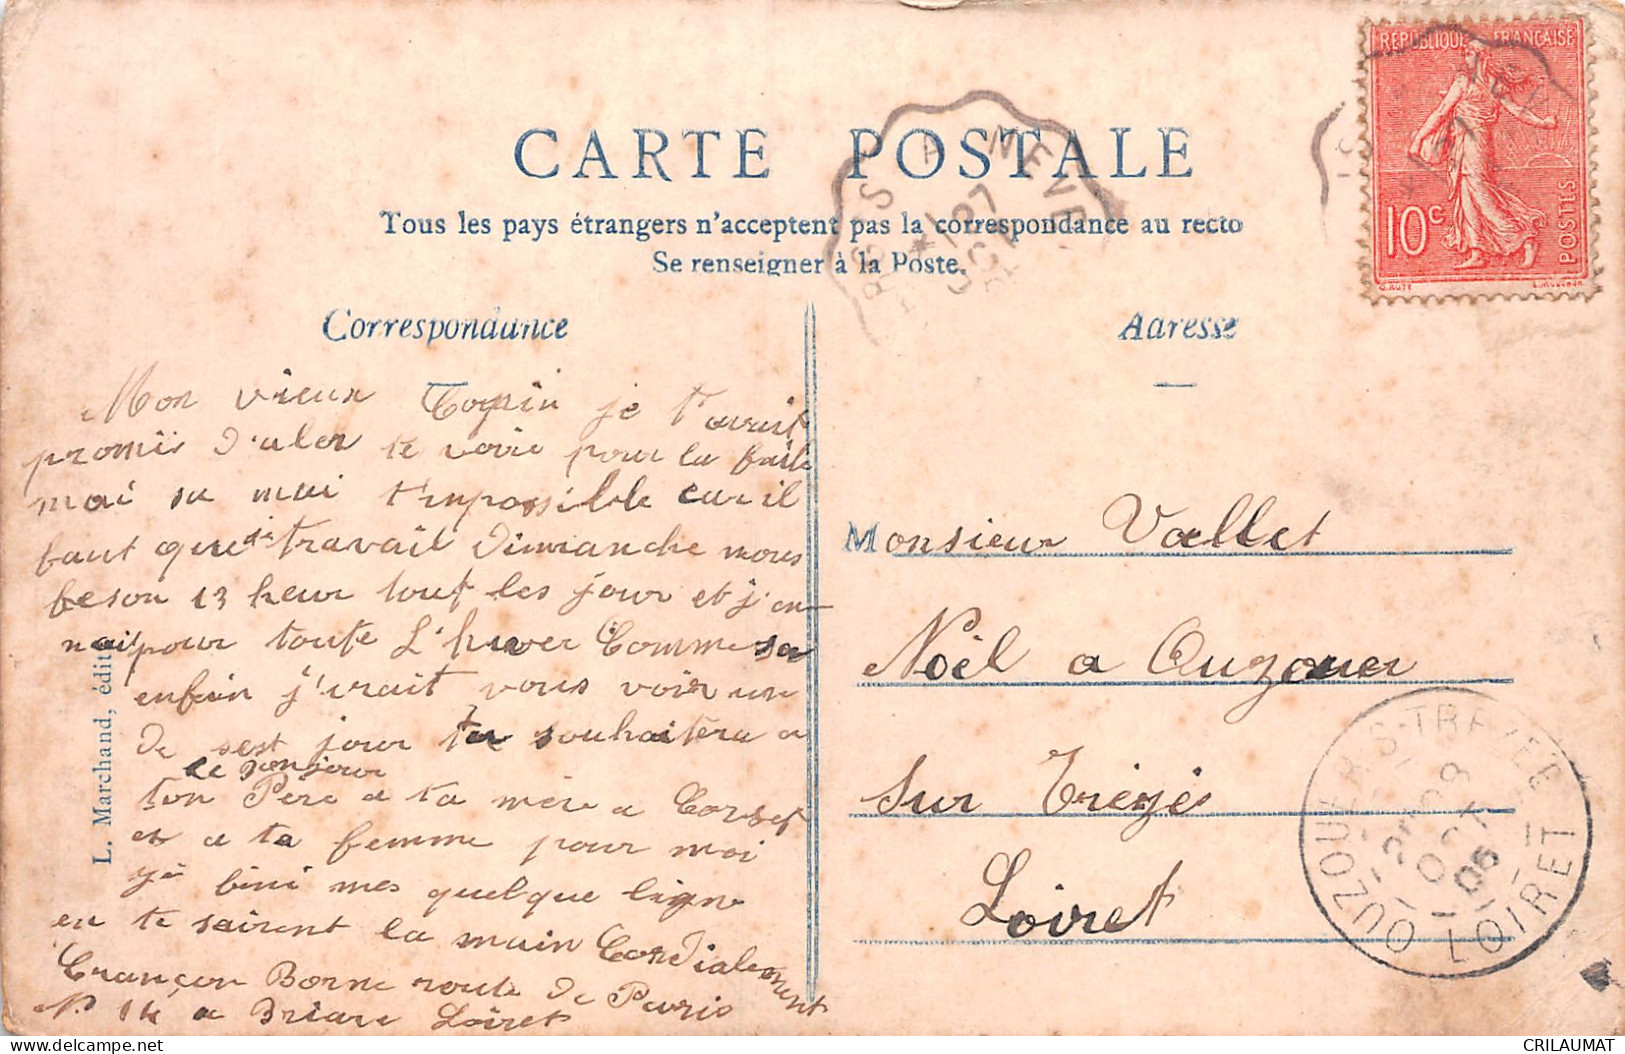 RÉPUBLIQUE FRANÇAISE
10c
POSTES
CARTE POSTALE
Tous les pays étrangers n'acceptent pas la correspondance au recto
Se renseigner à la Poste.
Correspondance
Adresse
Mon vieux Copin je t'avait
promis d'aler te voire pour la faite
mai sa mai t'impossible car il
faut que travail dimanche nous
feson 13 heur tout les jour et j'en
nait pour toute L'hiver Comme sa
enfain j'irait vous voir un
de sest jour tu souhaitera a
le Bonjour
ton Père a ta mère a
et a ta femme pour moi
je fini mes quelque ligne
en te sairent la main Cordialement
Françon Borne route de Paris
N. 14 a Briare Loiret
L. Marchand, édit
Monsieur Vallet
Noël a Ouzouer
Sur Trézés
Loiret
A NEVE
27
OCT
OUZOUER-S-TREZEE
8
OCT
06
LOIRET
CRILAUMAT